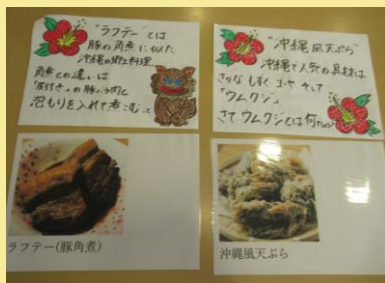 "ラフテー"とは
豚の角煮に似た
沖縄の郷土料理
角煮との違いは
"皮付き"の豚バラ肉と
泡もりを入れて煮こむ
ラフテー(豚角煮)
"沖縄風天ぷら"
沖縄で人気の具材は
さかな もずく ゴーヤ そして
「ウムクジ」
さてウムクジとは何でしょう
沖縄風天ぷら